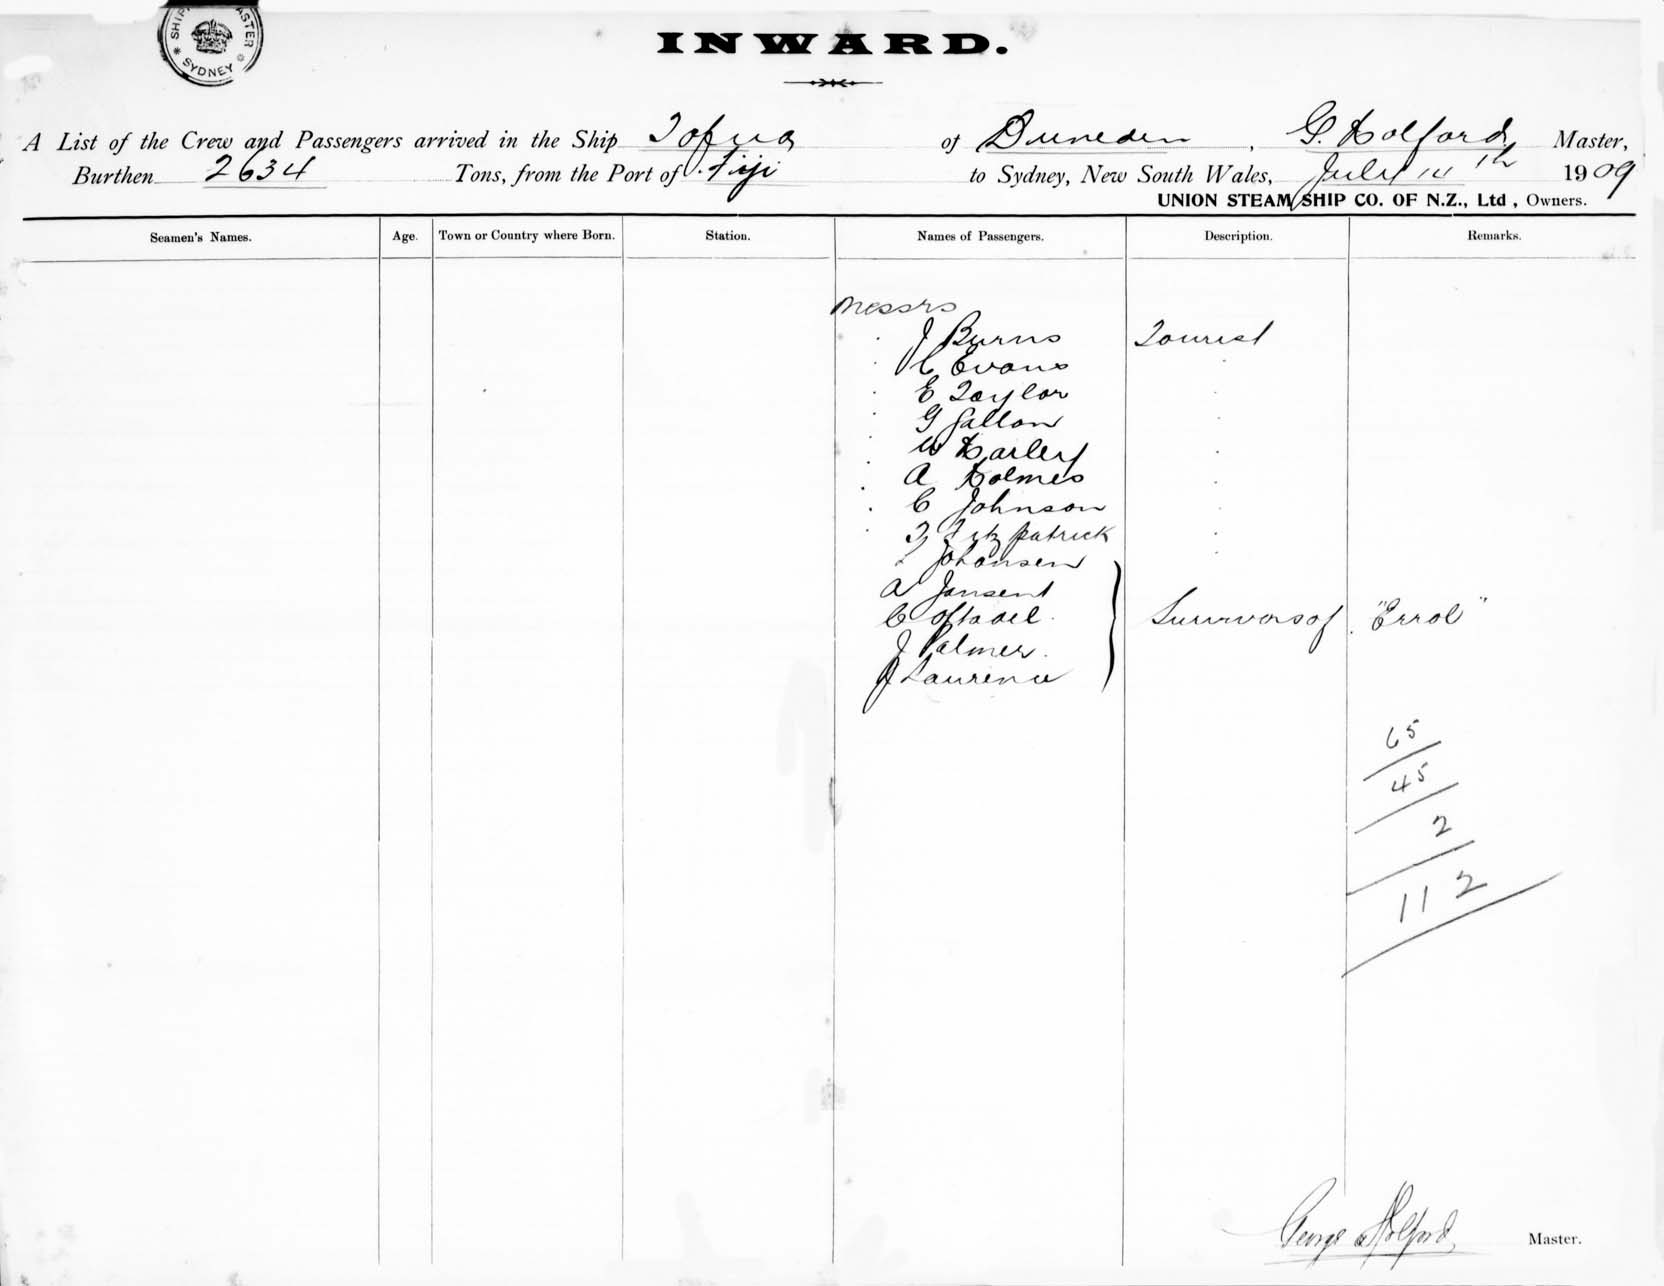 SHIP ASTER
SYDNEY
INWARD.
A List of the Crew and Passengers arrived in the Ship Tofua of Dunedin, G. Holford Master,
Burthen 2634 Tons, from the Port of Fiji to Sydney, New South Wales, July 14th 1909
UNION STEAM SHIP CO. OF N.Z., Ltd, Owners.
Seamen's Names. Age. Town or Country where Born. Station. Names of Passengers. Description. Remarks.
Messrs
J Burns Tourist
C Evans
E Taylor
G Gallon
W Harley
A Holmes
C Johnson
T Fitzpatrick
Johansen
A Jansent
C Oftadel.
J Palmer.
J Laurence
Survivors of "Errol"
65
45
2
112
George Holford Master.